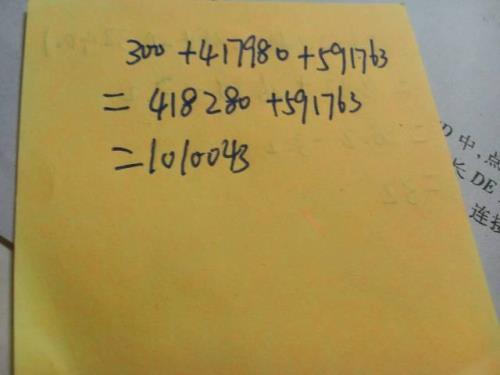 300+417980+591763
=418280+591763
=1010043
D中,点
长DE
连接